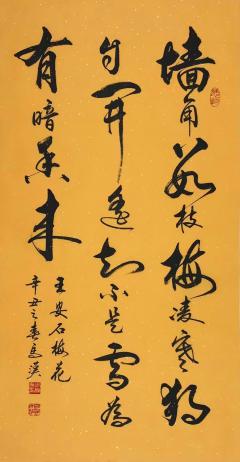 墙角数枝梅凌寒独
自开遥知不是雪为
有暗香来
王安石梅花
辛丑之春